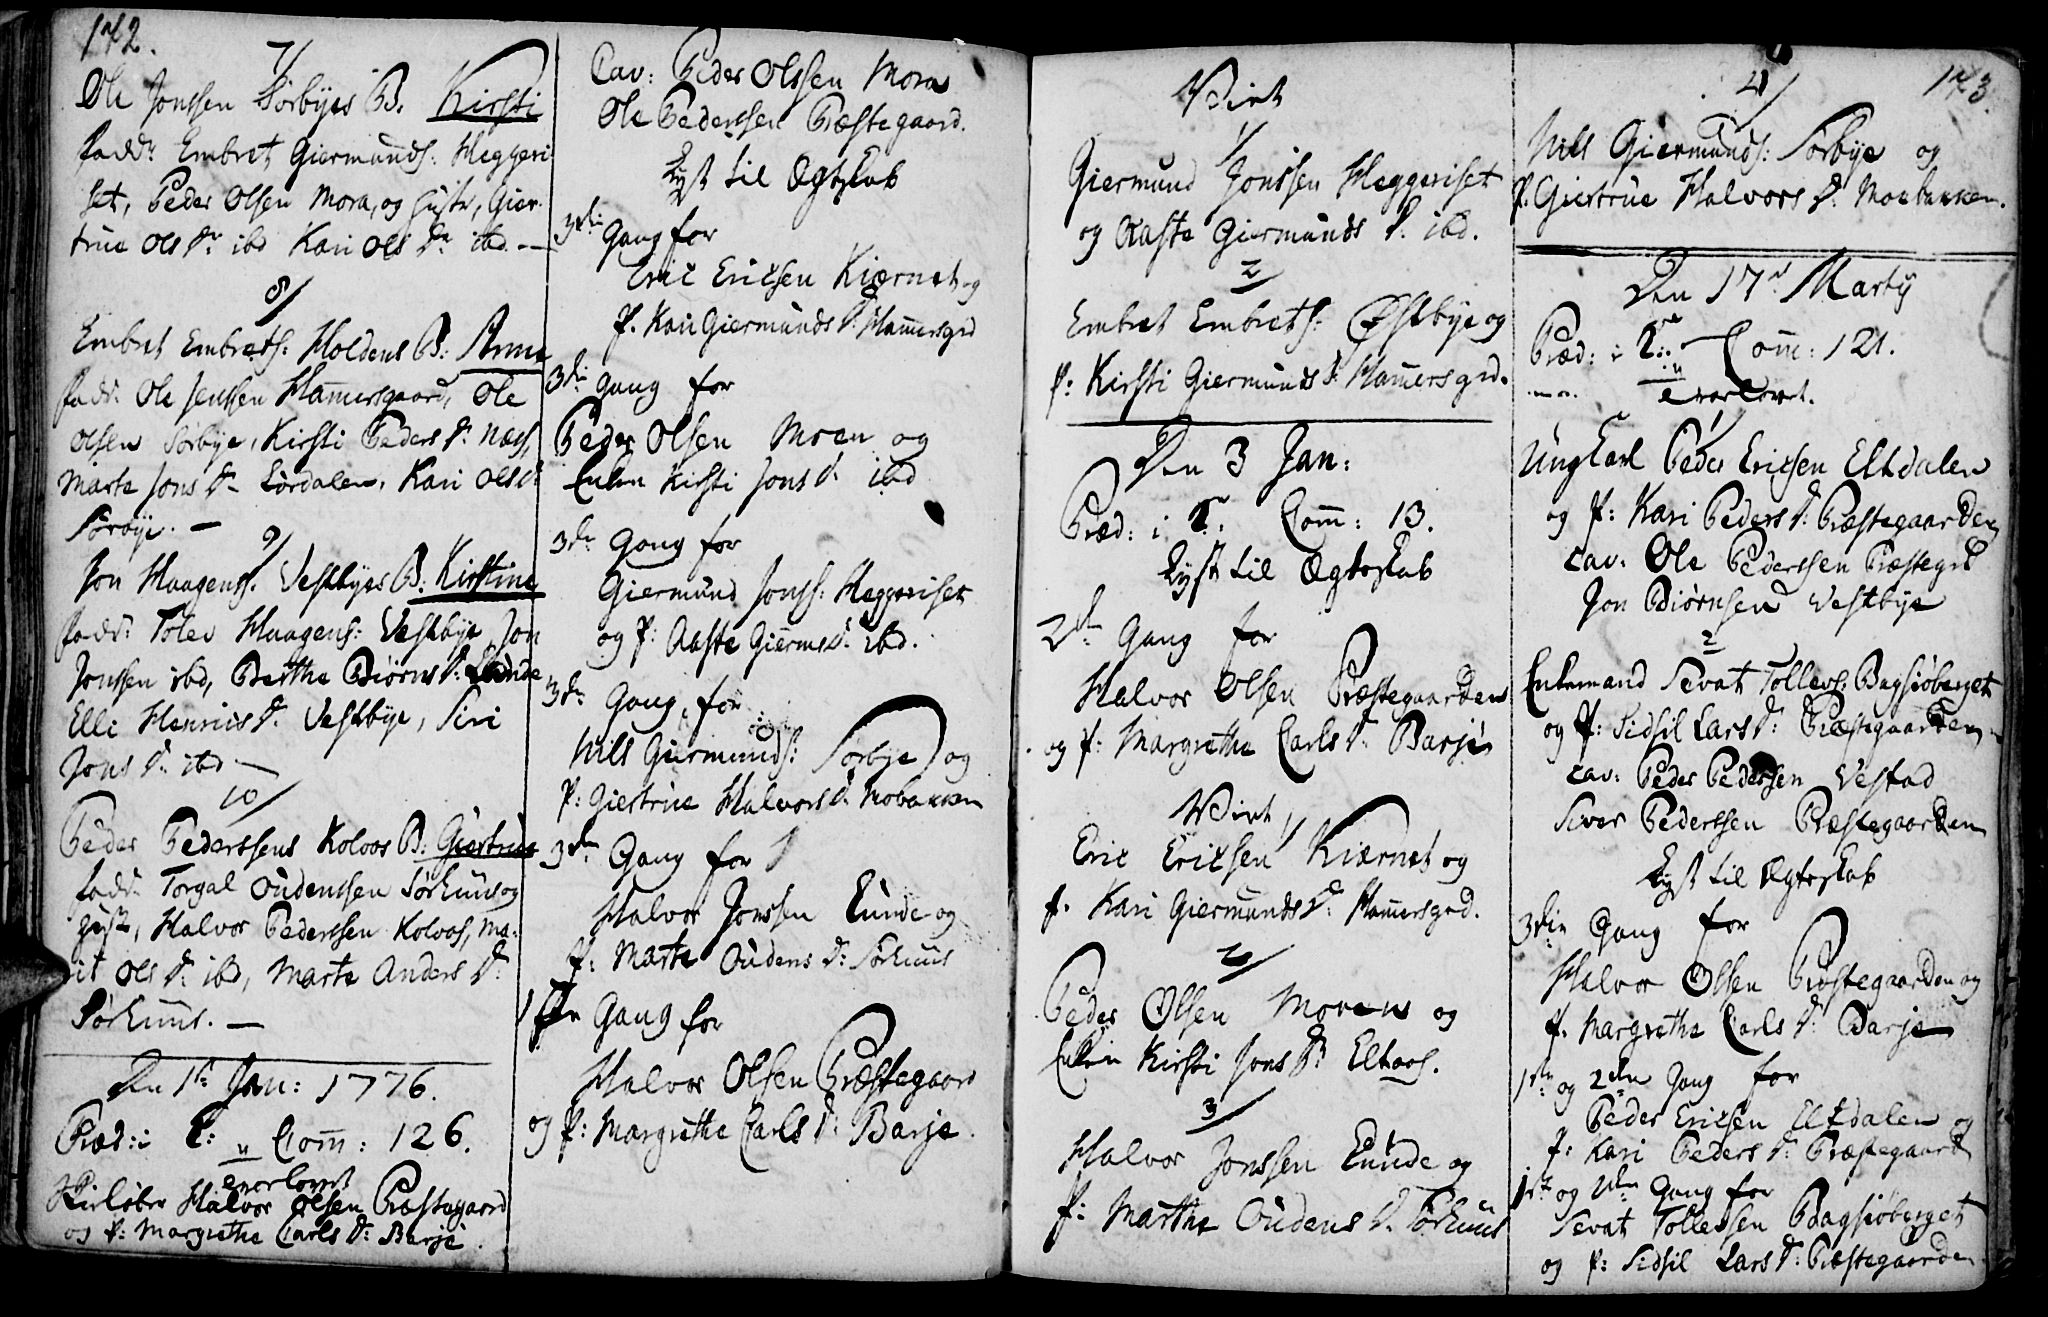 172.
7/
Ole Jonssen Sørbyes B. Kirsti
fadd: Embret Giermunds: Heggeri
set, Peder Olsen Mora, og hustr, Gier
true Ols Dr ibd Kari Ols Dr ibd. —
8/
Embret Embrets: Holdens B: Anne
fadd: Ole Jenssen Hamersgaard, Ole
Olsen Sørbye, Kirsti Peders Dr Næss,
Marte Jons Dr Lørdalen, Kari Ols Dr
Sørbye. —
9/
Jon Haagens: Vestbyes B: Kirstine
fadd: Tolev Haagens: Vestbye, Jon
Jonssen ibd, Berthe Biørns Dr: Lunde
Elli Henrics Dr. Vestbye, Siri
Jons Dr. ibd —
10/
Peder Pederssens Koloos B: Giertrue
fadd: Torgal Oudenssen Sørhuus og
hust, Halvor Pederssen Koloos, Ma-
rit Ols Dr: ibd, Marte Anders Dr:
Sørhuus. —
Den 1ste Jan: 1776.
Præd: i T: Com̄: 126.
u
Trorlovet
Halvor Olsen Præstegaard
og P: Margrethe Carls Dr: Barje.
Cav: Peder Olssen Mora
Ole Pederssen Præstegaard.
Lyst til Ægteskab
3die Gang for
Eric Ericsen Kiærnet og
P. Kari Giermunds Dr: Ham̄ersgrd
3die Gang for
Peder Olsen Moen og
Enken Kirsti Jons Dr. ibd
3die Gang for
Giermund Jonss: Heggeriset
og P: Aaste Gierms Dr. ibd.
3die Gang for
Nils Giermunds: Sørbye og
P: Giertrue Halvors Dr: Mobakken
3die Gang for
Halvor Jonssen Lunde og
P: Marte Oudens Dr: Sørhuus
1ste Gang for
Halvor Olsen Præstegaard
og P: Margrethe Carls Dr: Barje.
Viet
1/
Giermund Jonssen Heggeriset
og Aaste Giermunds Dr. ibd.
2/
Embret Embrets: Østbye og
P: Kirsti Giermunds Dr: Ham̄ersgrd.
Den 3 Jan:
Præd: i T. Com̄: 13.
Lyst til Ægteskab
2den Gang for
Halvor Olsen Præstegaarden
og P: Margrethe Carls Dr: Barje
Viet
1/
Eric Ericsen Kiærnet og
P. Kari Giermunds Dr: Ham̄ersgrd.
2/
Peder Olsen Moren og
Enken Kirsti Jons Dr: Eltaas.
3/
Halvor Jonssen Lunde og
P: Marthe Oudens Dr. Sørhuus
173.
4/
Nils Giermunds: Sørbye og
P. Giertrue Halvors Dr: Moebakken.
Den 17de Martij
Præd: i T: Com̄: 121.
u
Trorlovet.
1/
Ungkarl Peder Ericsen Eltdalen
og P: Kari Peders Dr: Præstegaarden
Cav: Ole Pederssen Præstegrd
Jon Biørnsen Vestbye
2/
Enkemand Sevat Tollevs: Bagsiøberget
og P: Sidsil Lars Dr: Præstegaarden
Cav: Peder Pederssen Vestad
Siver Pederssen Præstegaarden
Lyst til Ægteskab
3die Gang for
Halvor Olsen Præstegaarden og
P. Margrethe Carls Dr: Barje
1ste og 2den Gang for
Peder Ericsen Eltdalen og
P: Kari Peders Dr: Præstegaard
1ste og 2den Gang for
Sevat Tollevsen Bagsiøberget
og P: Sidsil Lars Dr: Præstegaarden